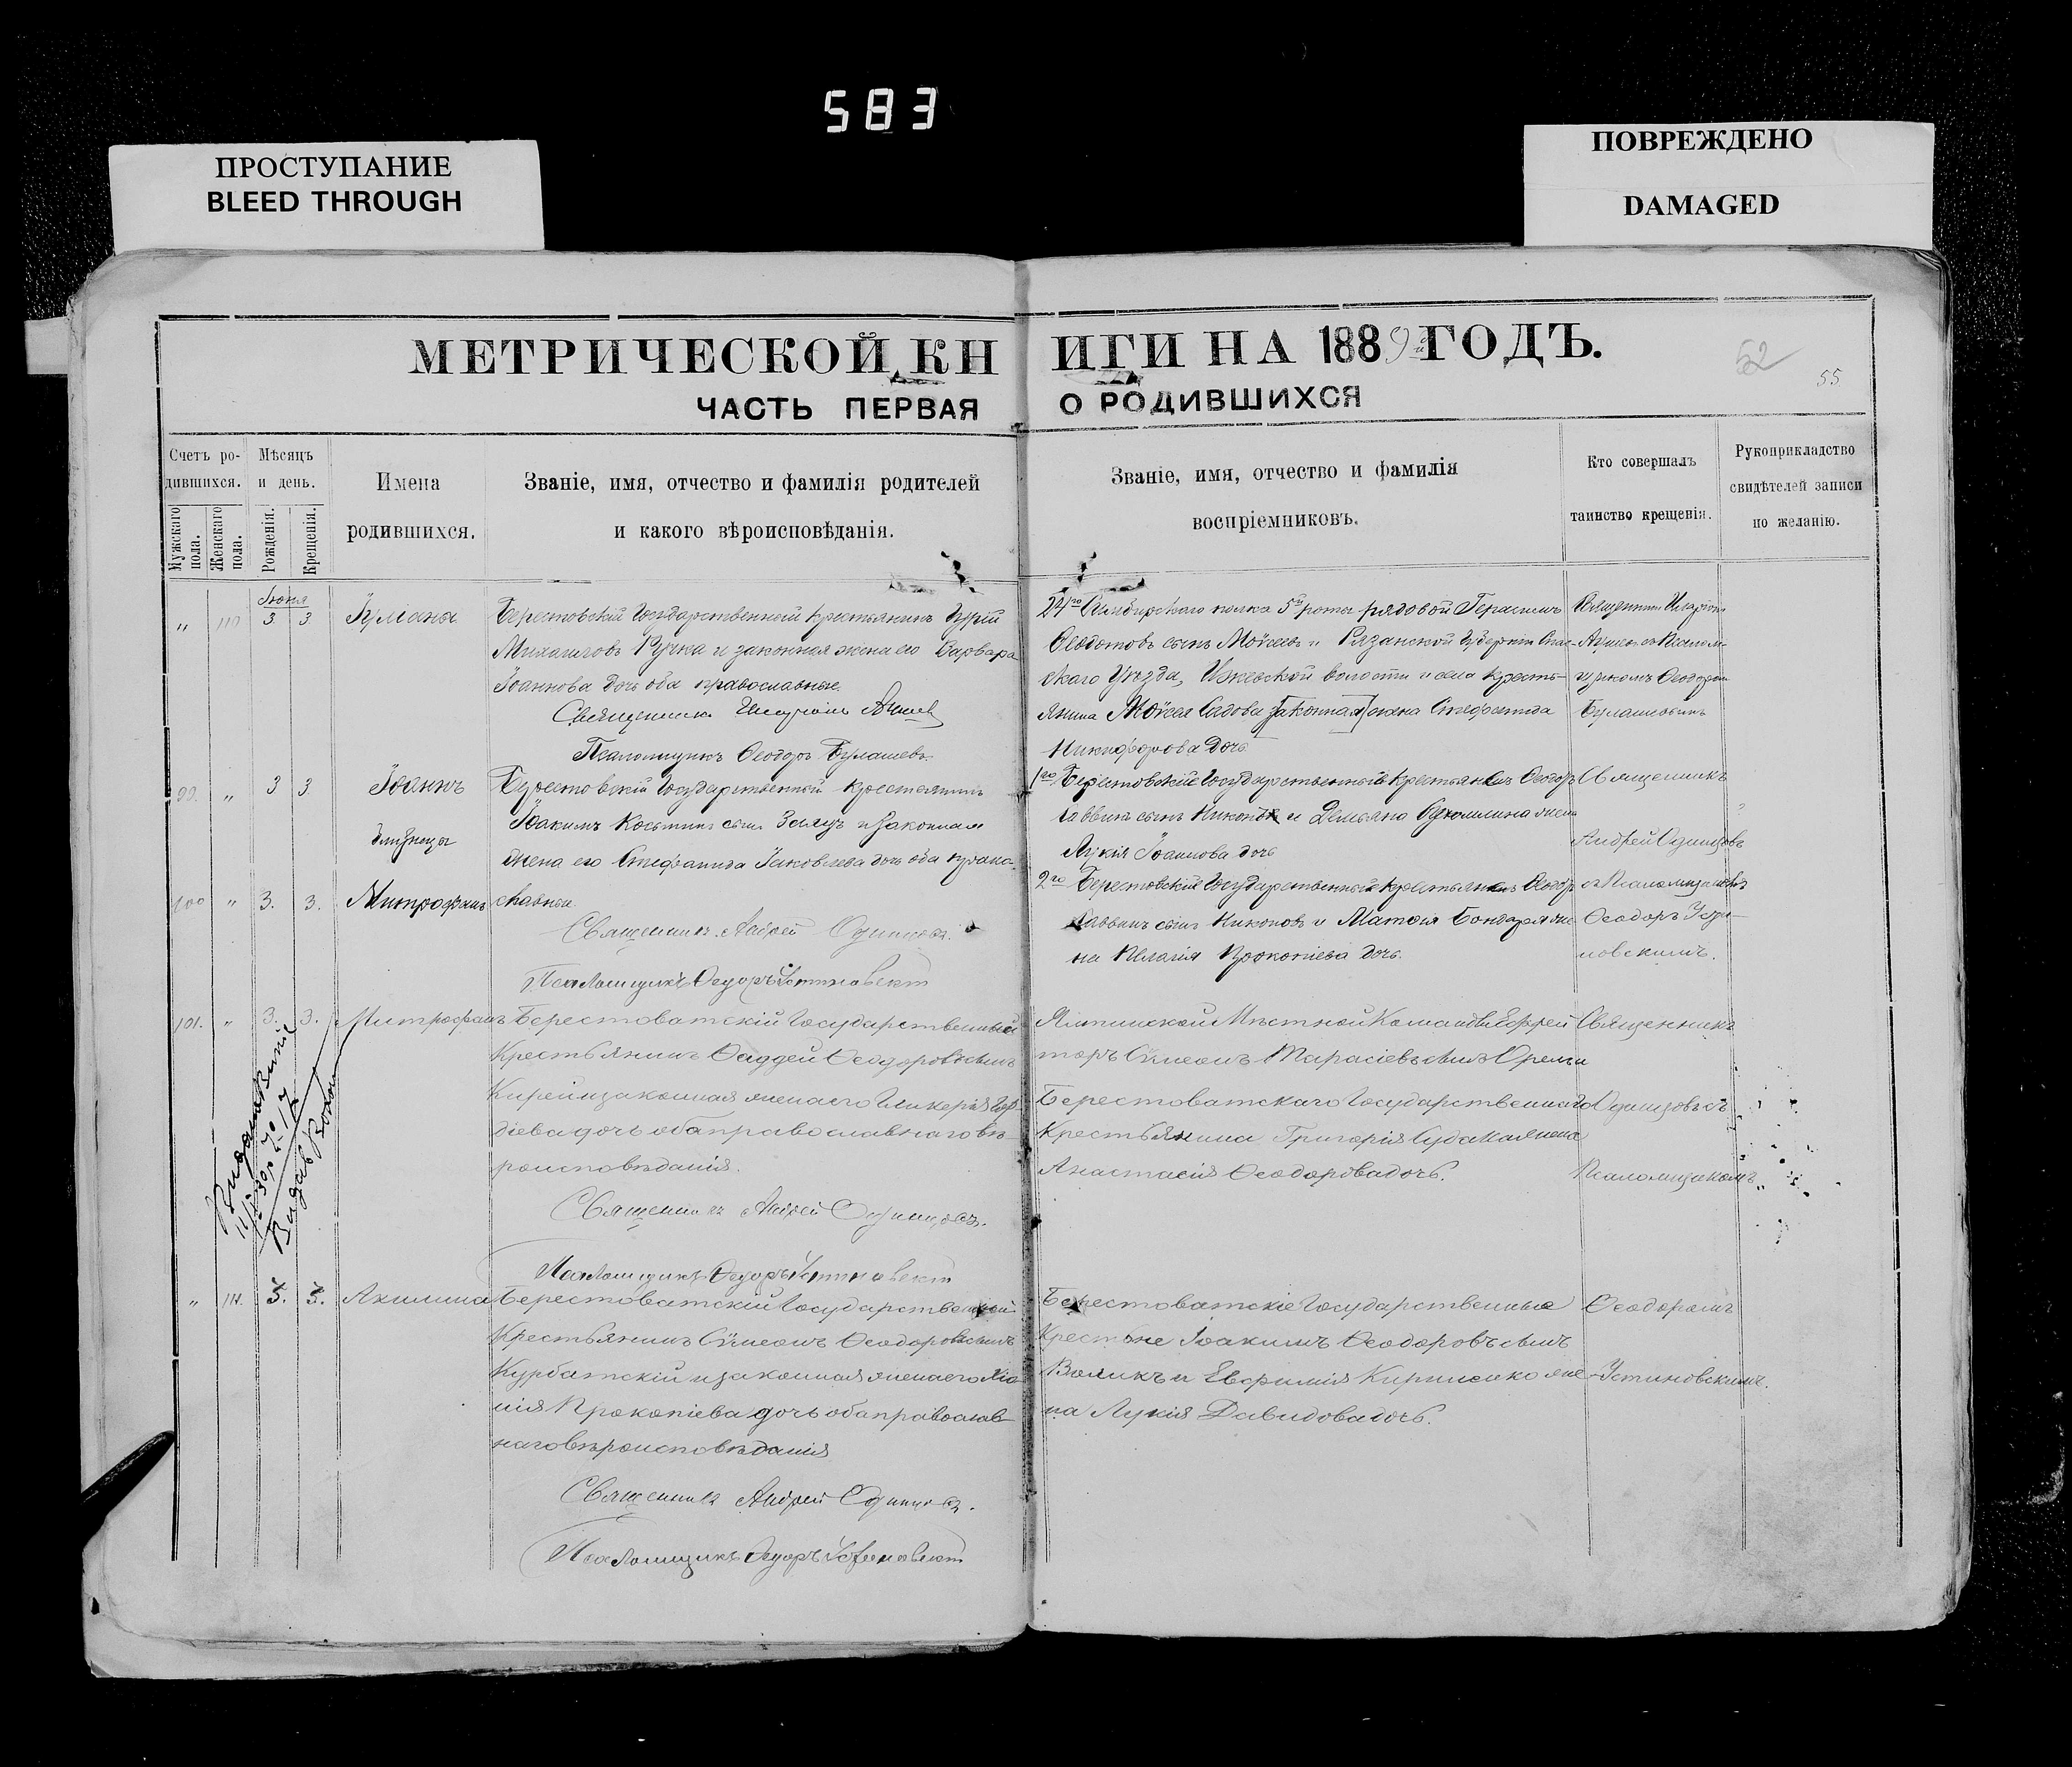 583
ПРОСТУПАНИЕ
BLEED THROUGH
ПОВРЕЖДЕНО
DAMAGED
МЕТРИЧЕСКОЙ КНИГИ НА 1889 й ГОДЪ.
52
55
ЧАСТЬ ПЕРВАЯ О РОДИВШИХСЯ
Счетъ ро-
дившихся.
Мужскаго пола.
Женскаго пола.
Мѣсяцъ
и день.
Рожденія.
Крещенія.
Имена
родившихся.
Званіе, имя, отчество и фамилія родителей
и какого вѣроисповѣданія.
Званіе, имя, отчество и фамилія
воспріемниковъ.
Кто совершалъ
таинство крещенія.
Рукоприкладство
свидѣтелей записи
по желанію.
Іюня
" 110 3 3 Іуліана
Берестовскій Государственный крестьянинъ Гурій
Михаиловъ Ручка и законная жена его Варвара
Іоаннова дочь оба православные.
Священникъ
Псаломщикъ Ѳеодоръ Булашевъ
24го Симбирскаго полка 5й роты рядовой Герасимъ
Ѳеодотовъ сынъ Моисеевъ и Рязанской губерніи Спас-
скаго уѣзда, Ижевской волости и села кресть-
янина Моисея Садова законная жена Стефанида
Никифорова дочь
Священникъ Иларіонъ
съ Псалом-
щикомъ Ѳеодоромъ
Булашовымъ
99. " 3 3. Іоаннъ
близнецы
100 " 3. 3. Митрофанъ
Берестовскій Государственный крестьянинъ
Іоакимъ Косьминъ сынъ Заяцъ и законная
жена его Стефанида Іаковлева дочь оба право-
славные.
Священникъ Андрей Одинцовъ.
Псаломщикъ Ѳедоръ Устиновскій
1го Берестовскій Государственный крестьянинъ Ѳеодоръ
Саввинъ сынъ и Демьяна жена
Лукія Іоаннова дочь
2го Берестовскій Государственный крестьянинъ Ѳеодоръ
Саввинъ сынъ Никоновъ и Матѳія Бондаря же-
на Пелагія Прокопіева дочь.
Священникъ
Андрей Одинцовъ
съ Псаломщикомъ
Ѳеодоръ Усти-
новскимъ.
101. " 3. 3. Митрофанъ
Берестоватскій Государственный
Крестьянинъ Ѳаддей Ѳеодоровъ сынъ
Кирей и законная жена его Гликерія Гор-
діева дочь оба православнаго вѣ-
роисповѣданія.
Священникъ Андрей Одинцовъ.
Псаломщикъ Ѳедоръ Устиновскій
Ялтинской Мѣстной Команды Ефрей-
торъ Сѵмеонъ Тарасіевъ сынъ Орелъ и
Берестоватскаго Государственнаго
Крестьянина Григорія Судака жена
Анастасія Ѳеодорова дочь.
Священникъ
Одинцовъ съ
Псаломщикомъ
" 111. 5. 5. Акилина
Берестоватскій Государственный
Крестьянинъ Сѵмеонъ Ѳеодоровъ сынъ
Курбатскій и законная жена его Хіо-
нія Прокопіева дочь оба православ-
наго вѣроисповѣданія
Священникъ Андрей Одинцовъ.
Псаломщикъ Ѳедоръ Устиновскій
Берестоватскіе Государственные
Крестьяне Іоакимъ Ѳеодоровъ сынъ
Воликъ и Евфимія Кириченко же-
на Лукія Давидова дочь.
Ѳеодоромъ
Устиновскимъ.